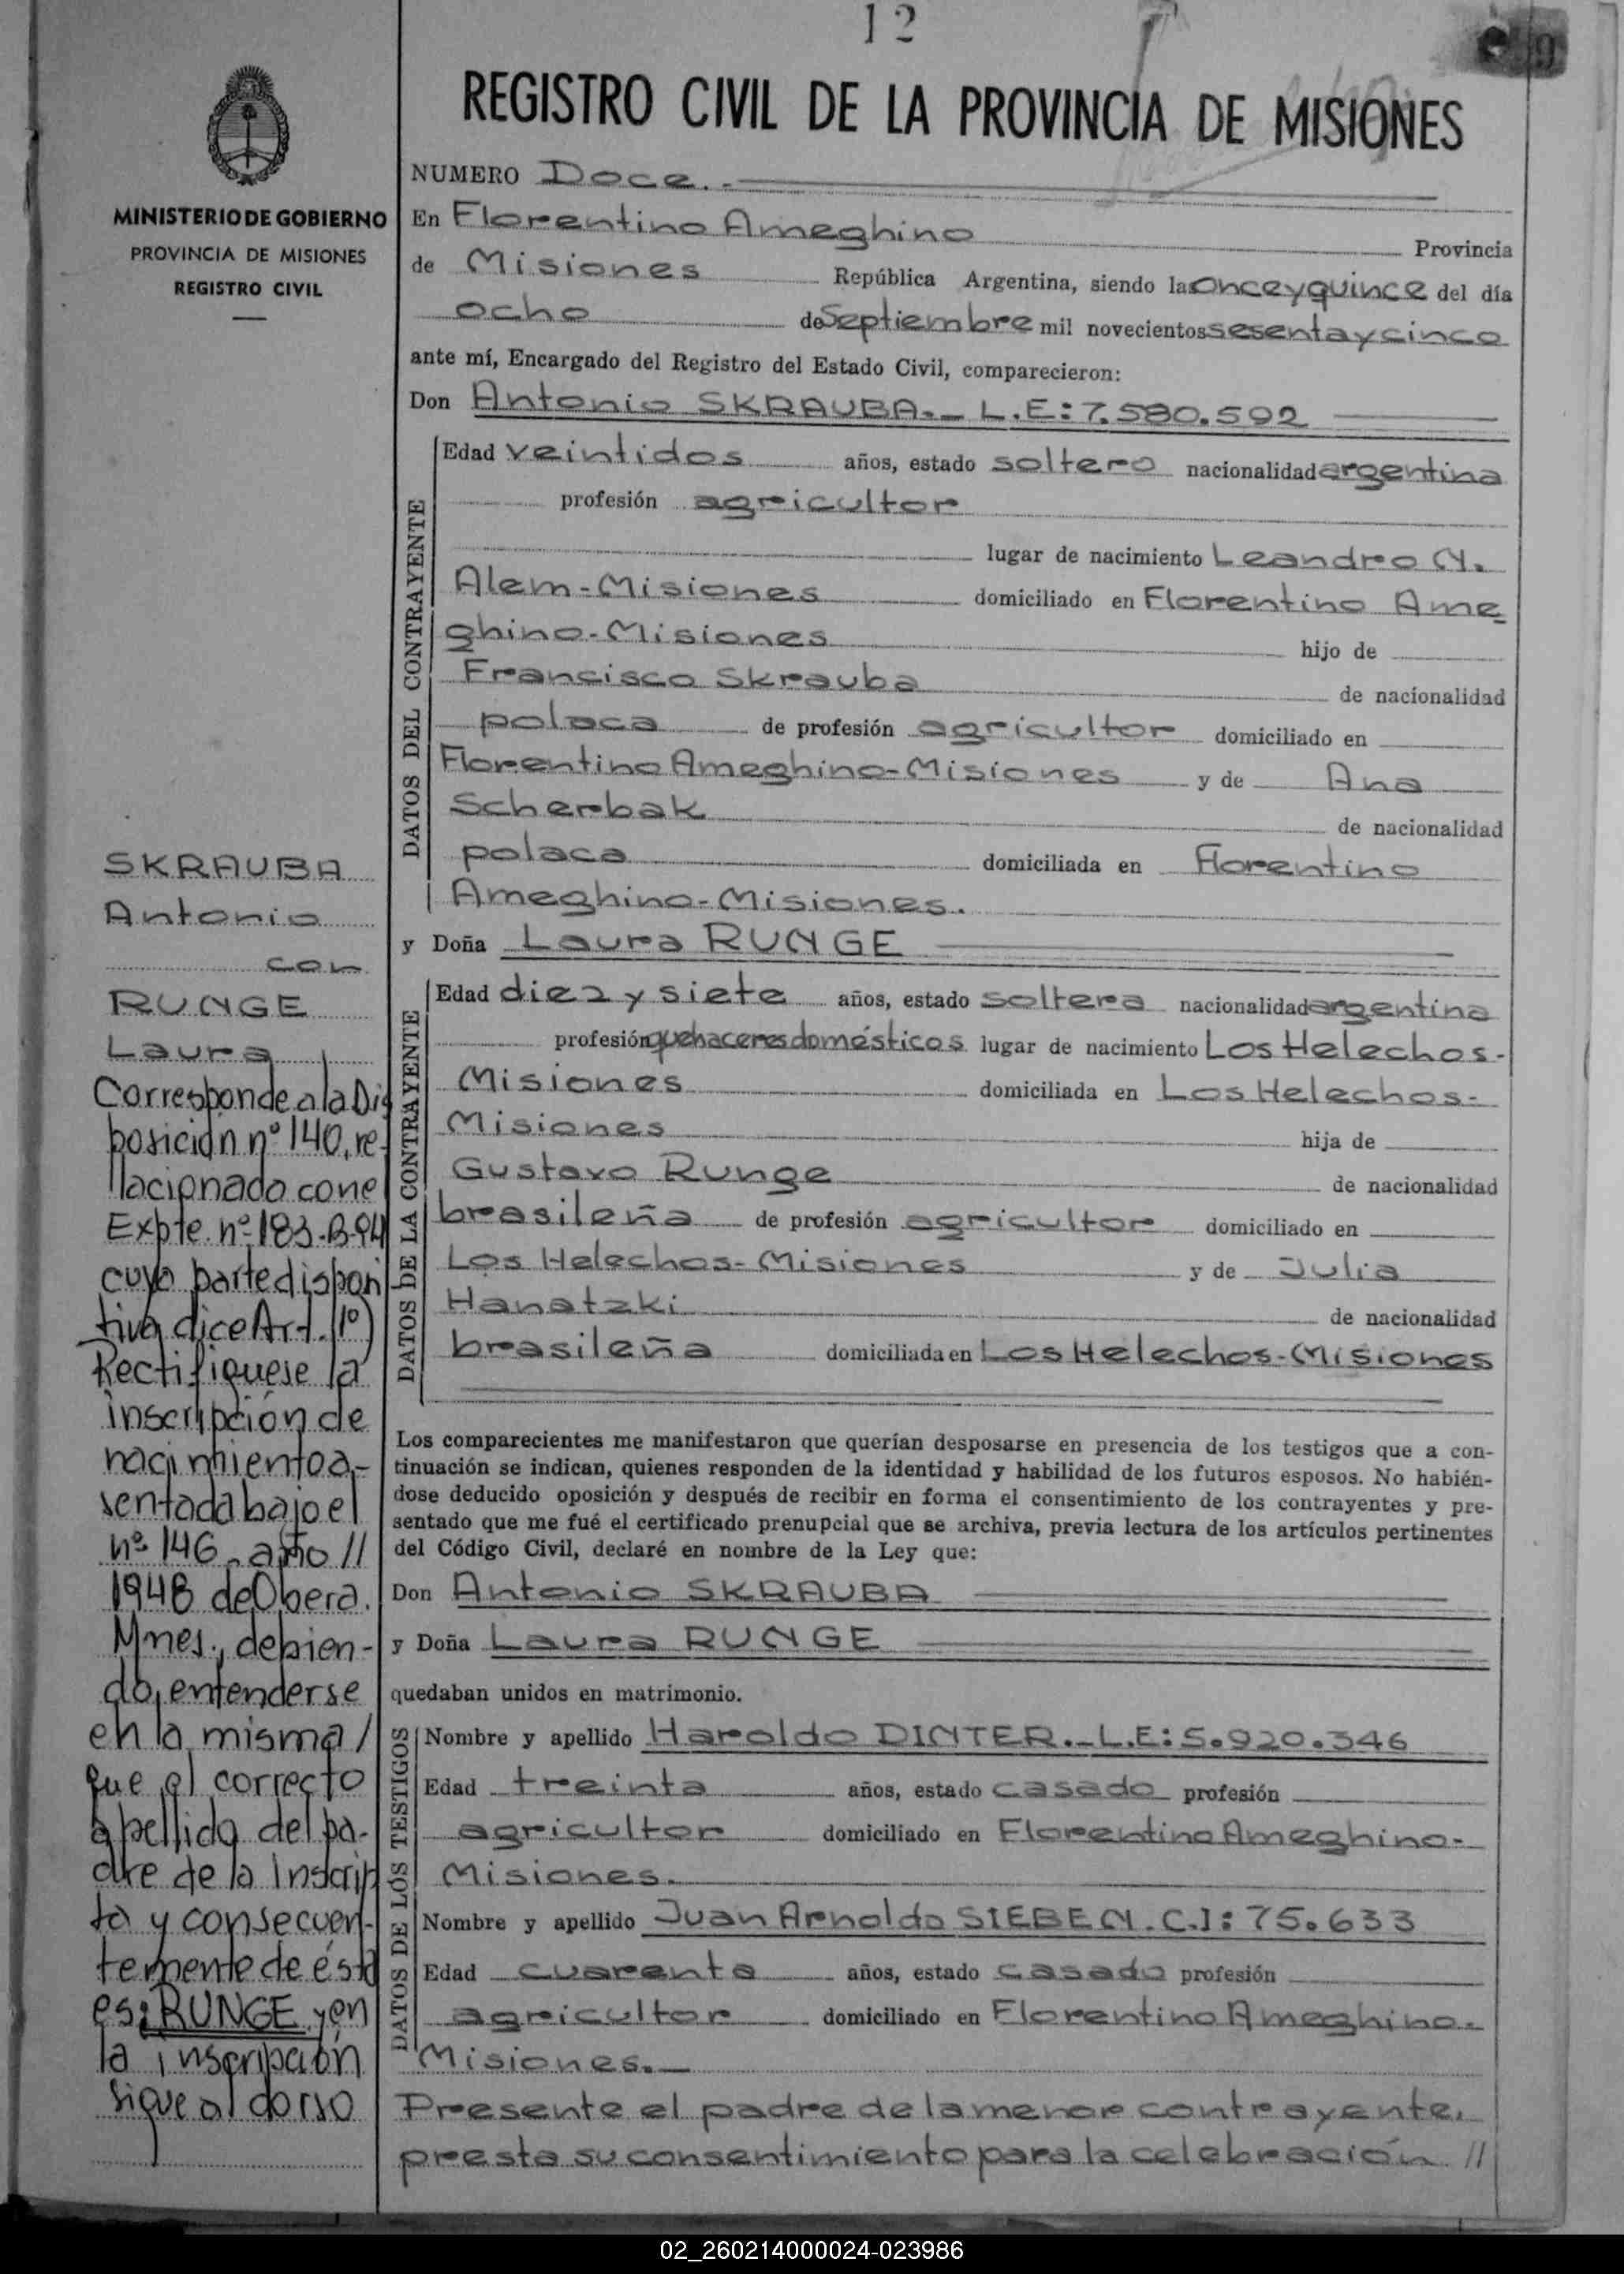 12
REGISTRO CIVIL DE LA PROVINCIA DE MISIONES
MINISTERIO DE GOBIERNO
PROVINCIA DE MISIONES
REGISTRO CIVIL
NUMERO Doce..
En Florentino Ameghino Provincia
de Misiones República Argentina, siendo las once y quince del día
ocho de Septiembre mil novecientos sesenta y cinco
ante mí, Encargado del Registro del Estado Civil, comparecieron:
Don Antonio SKRAUBA._ L.E:7.580.592
DATOS DEL CONTRAYENTE
Edad veintidos años, estado soltero nacionalidad argentina
profesión agricultor
lugar de nacimiento Leandro N.
Alem-Misiones domiciliado en Florentino Ame
ghino-Misiones hijo de
Francisco Skrauba de nacionalidad
polaca de profesión agricultor domiciliado en
Florentino Ameghino-Misiones y de Ana
Scherbak de nacionalidad
polaca domiciliada en Florentino
Ameghino-Misiones.
y Doña Laura RUNGE
DATOS DE LA CONTRAYENTE
Edad diez y siete años, estado soltera nacionalidad argentina
profesión quehaceres domésticos lugar de nacimiento Los Helechos-
Misiones domiciliada en Los Helechos-
Misiones hija de
Gustavo Runge de nacionalidad
brasileña de profesión agricultor domiciliado en
Los Helechos-Misiones y de Julia
Hanatzki de nacionalidad
brasileña domiciliada en Los Helechos-Misiones
Los comparecientes me manifestaron que querían desposarse en presencia de los testigos que a con-
tinuación se indican, quienes responden de la identidad y habilidad de los futuros esposos. No habién-
dose deducido oposición y después de recibir en forma el consentimiento de los contrayentes y pre-
sentado que me fué el certificado prenupcial que se archiva, previa lectura de los artículos pertinentes
del Código Civil, declaré en nombre de la Ley que:
Don Antonio SKRAUBA
y Doña Laura RUNGE
quedaban unidos en matrimonio.
DATOS DE LOS TESTIGOS
Nombre y apellido Haroldo DINTER._L.E:5.920.346
Edad treinta años, estado casado profesión
agricultor domiciliado en Florentino Ameghino-
Misiones.
Nombre y apellido Juan Arnoldo SIEBEN. C.I:75.633
Edad cuarenta años, estado casado profesión
agricultor domiciliado en Florentino Ameghino-
Misiones._
Presente el padre de la menor contrayente,
presta su consentimiento para la celebración //
SKRAUBA
Antonio
con
RUNGE
Laura
Corresponde a la Dis
posición nº 140, re-
lacionado con e
Expte. nº 183-B-94
cuya parte disposi
tiva dice Art. 1º)
Rectifiquese la
inscripción de
nacimiento a-
sentada bajo el
nº 146, año //
1948 de Obera.
Mnes., debien-
do entenderse
en la misma /
que el correcto
apellido del pa-
dre de la inscrip
ta y consecuen-
temente de ésta
es: RUNGE y en
la inscripción
sigue al dorso
02_260214000024-023986